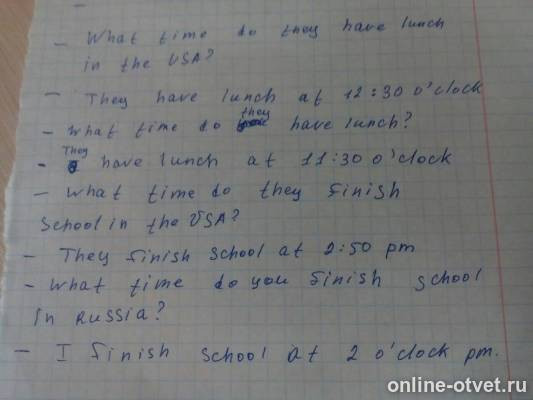 -
- What time do they have lunch
in the USA?
- They have lunch at 12:30 o'clock
- What time do they have lunch?
- They have lunch at 11:30 o'clock
- What time do they finish
School in the USA?
- They finish school at 2:50 pm
- What time do you finish school
in Russia?
- I finish school at 2 o'clock pm.
online-otvet.ru